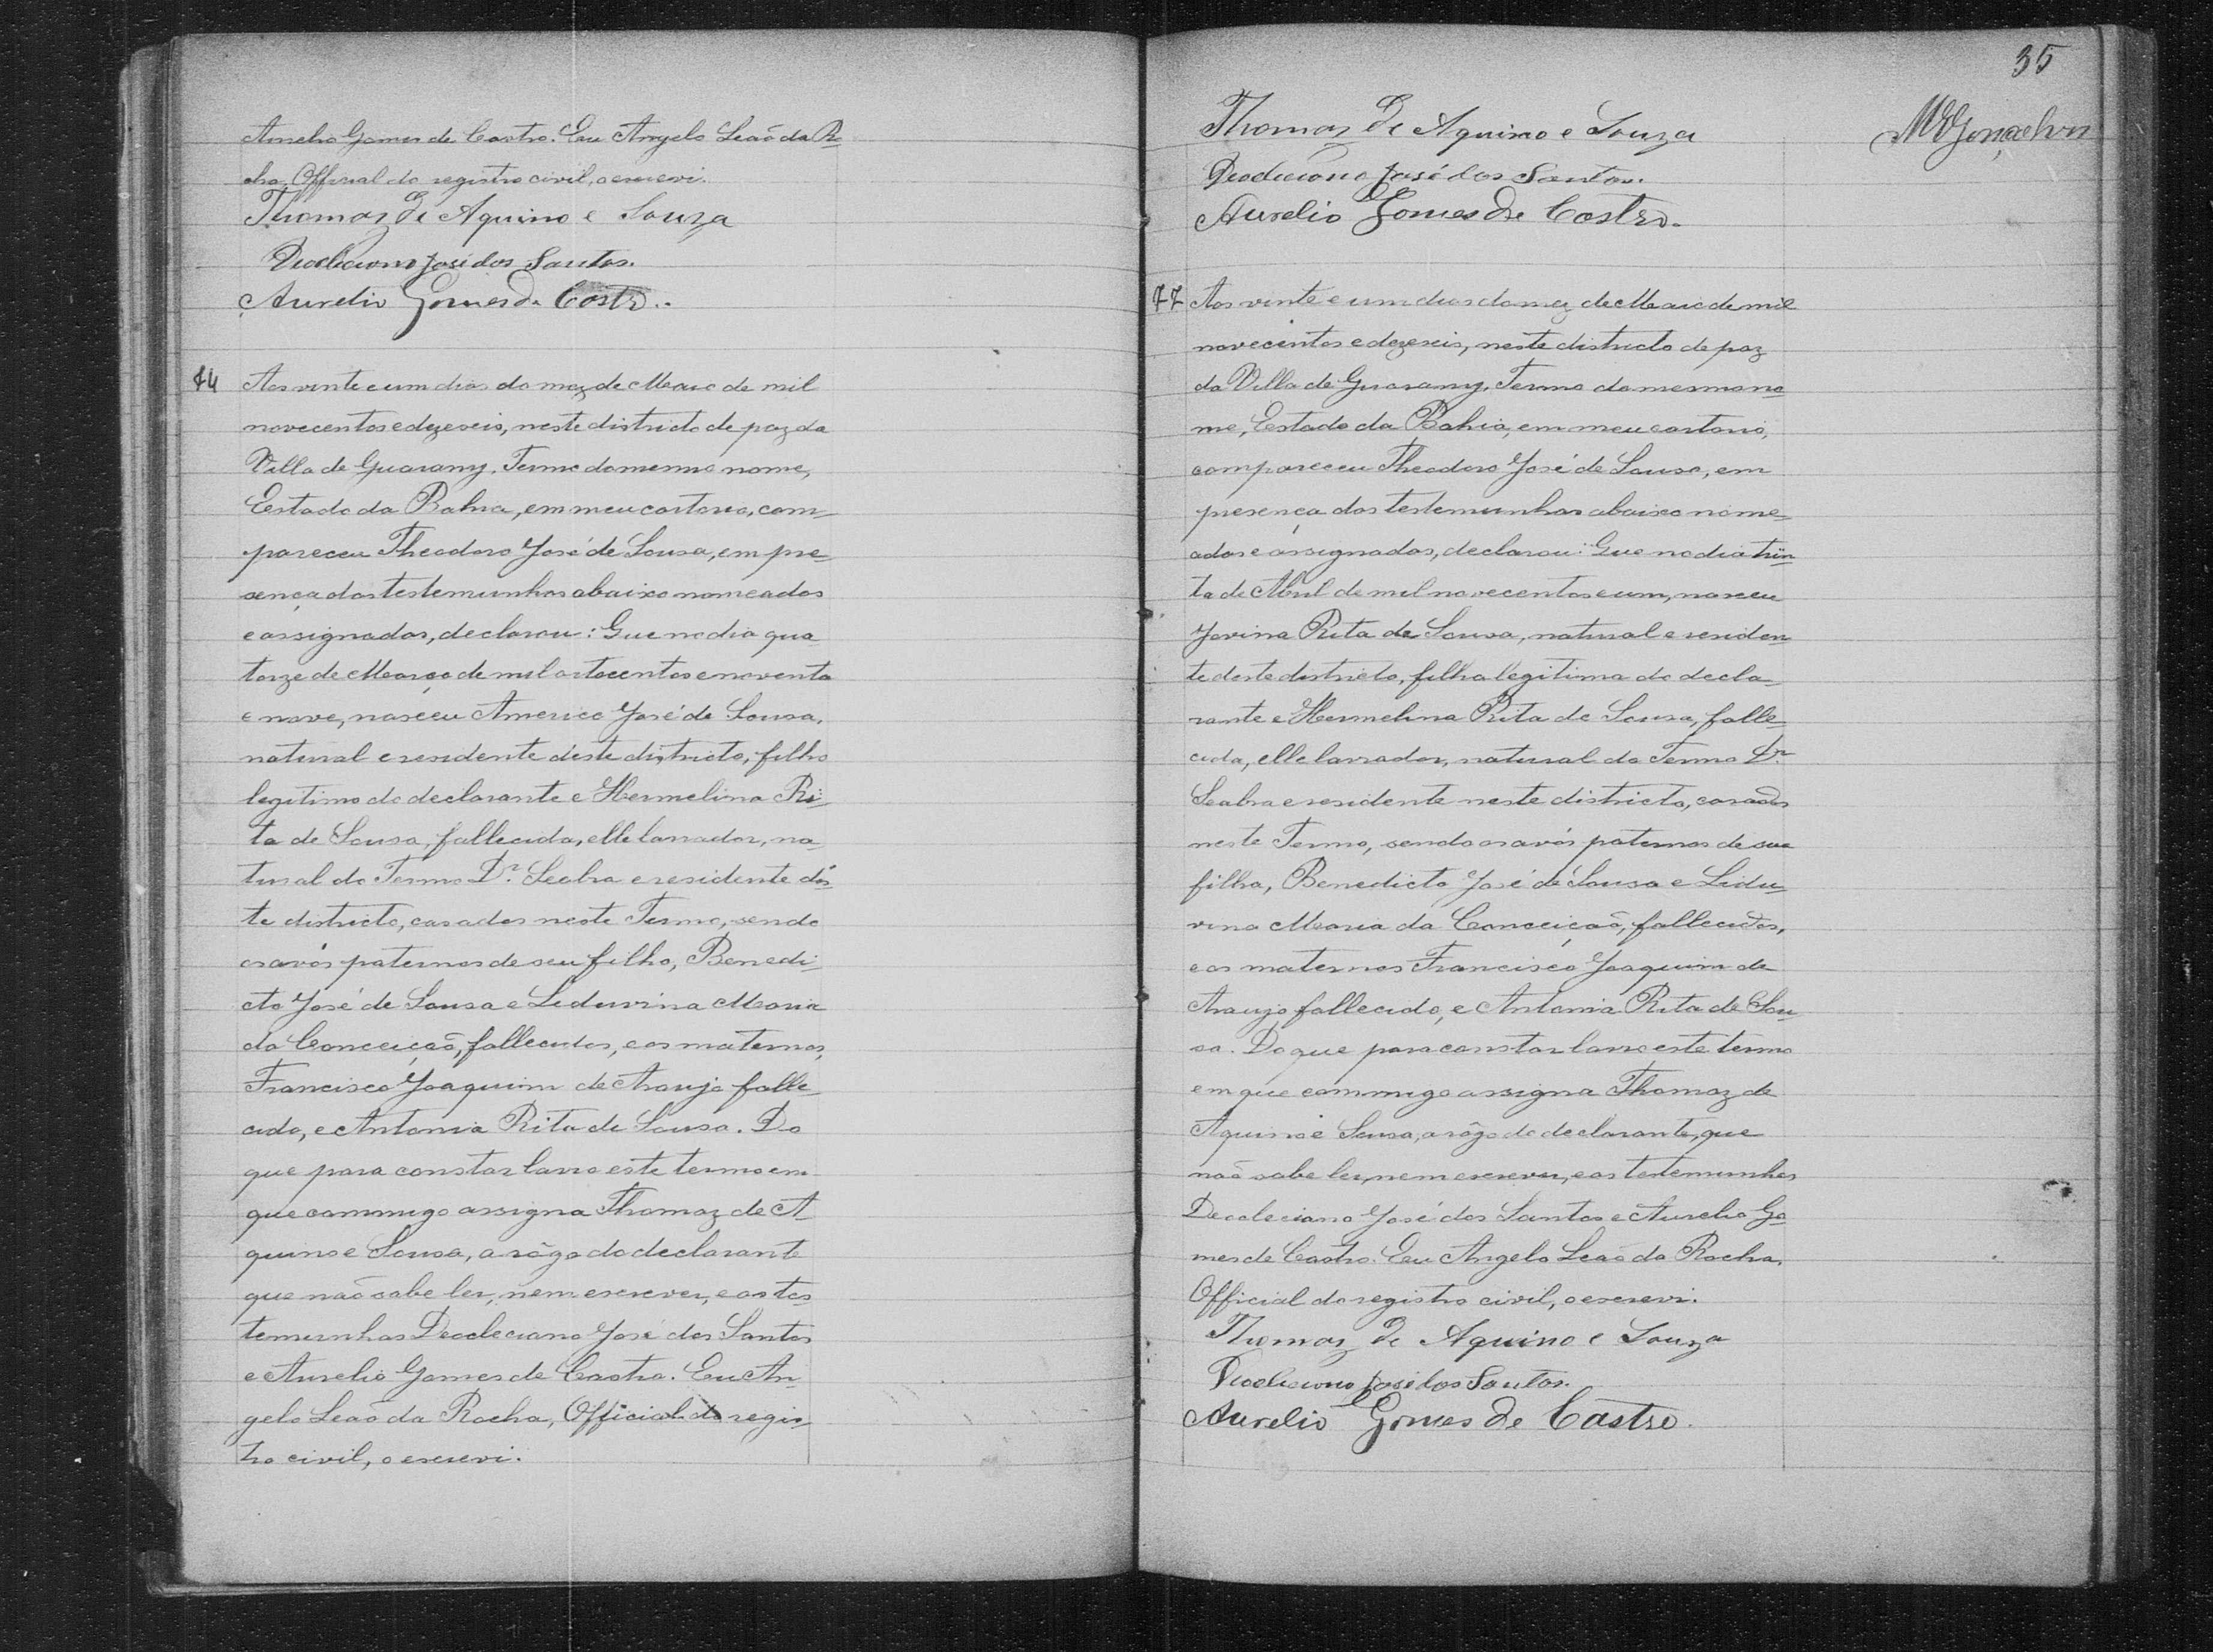 Aurelio Gomes de Castro. Eu Angelo Leaõ da Ro
cha, Official do registro civil, o escrevi.
Thomaz De Aquino e Souza
Deocleciano José dos Santos.
Aurelio Gomes de Castro.
Aos vinte e um dias do mez de Maio de mil
novecentos e dezeseis, neste districto de paz da
Villa de Guarany, Termo do mesmo nome,
Estado da Bahia, em meu cartorio, com-
pareceu Theodoro José de Sousa, em pre-
sença das testemunhas abaixo nomeados
e assignados, declarou: Que no dia qua
torze de Março de mil oitocentos e noventa
e nove, nasceu Americo José de Sousa,
natural e residente deste districto, filho
legitimo do declarante e Hermelina Ri-
ta de Sousa, fallecida, elle lavrador, na-
tural do Termo Dr. Seabra e residente dês
te districto, casados neste Termo, sendo
os avós paternos de seu filho, Benedi-
cto José de Sousa e Liduvina Maria
da Conceiçaõ, fallecidos, e os maternos,
Francisco Joaquim de Araujo falle-
cido, e Antonia Rita de Sousa. Do
que para constar lavro este termo em
que commigo assigna Thomaz de A-
quino e Sousa, a rôgo do declarante
que naõ sabe ler, nem escrever, e as tes
temunhas Deocleciano José dos Santos
e Aurelio Gomes de Castro. Eu An-
gelo Leaõ da Rocha, Official do regis-
tro civil, o escrevi.
35
Thomaz De Aquino e Souza
Deocleciano José dos Santos.
Aurelio Gomes De Castro.
MGonçalves
77 Aos vinte e um dias do mez de Maio de mil
novecentos e dezeseis, neste districto de paz
da Villa de Guarany, Termo do mesmo no
me, Estado da Bahia, em meu cartorio,
compareceu Theodoro José de Sousa, em
presença das testemunhas abaixo nome-
ados e assignados, declarou: Que no dia trin
ta de Abril de mil novecentos e um, nasceu
Jovina Rita de Sousa, natural e residen
te deste districto, filha legitima do decla-
rante e Hermelina Rita de Sousa, falle-
cida, elle lavrador, natural do Termo Dr.
Seabra e residente neste districto, casados
neste Termo, sendo os avós paternos de sua
filha, Benedicto José de Sousa e Lidu-
vina Maria da Conceiçaõ, fallecidos,
e os maternos Francisco Joaquim de
Araujo fallecido, e Antonia Rita de Sou
sa. Do que para constar lavro este termo
em que commigo assigna Thomaz de
Aquino e Sousa, a rôgo do declarante, que
naõ sabe ler, nem escrever, e as testemunhas
Deocleciano José dos Santos e Aurelio Go
mes de Castro. Eu Angelo Leaõ da Rocha,
Official do registro civil, o escrevi.
Thomaz De Aquino e Souza
Deocleciano José dos Santos.
Aurelio Gomes De Castro.